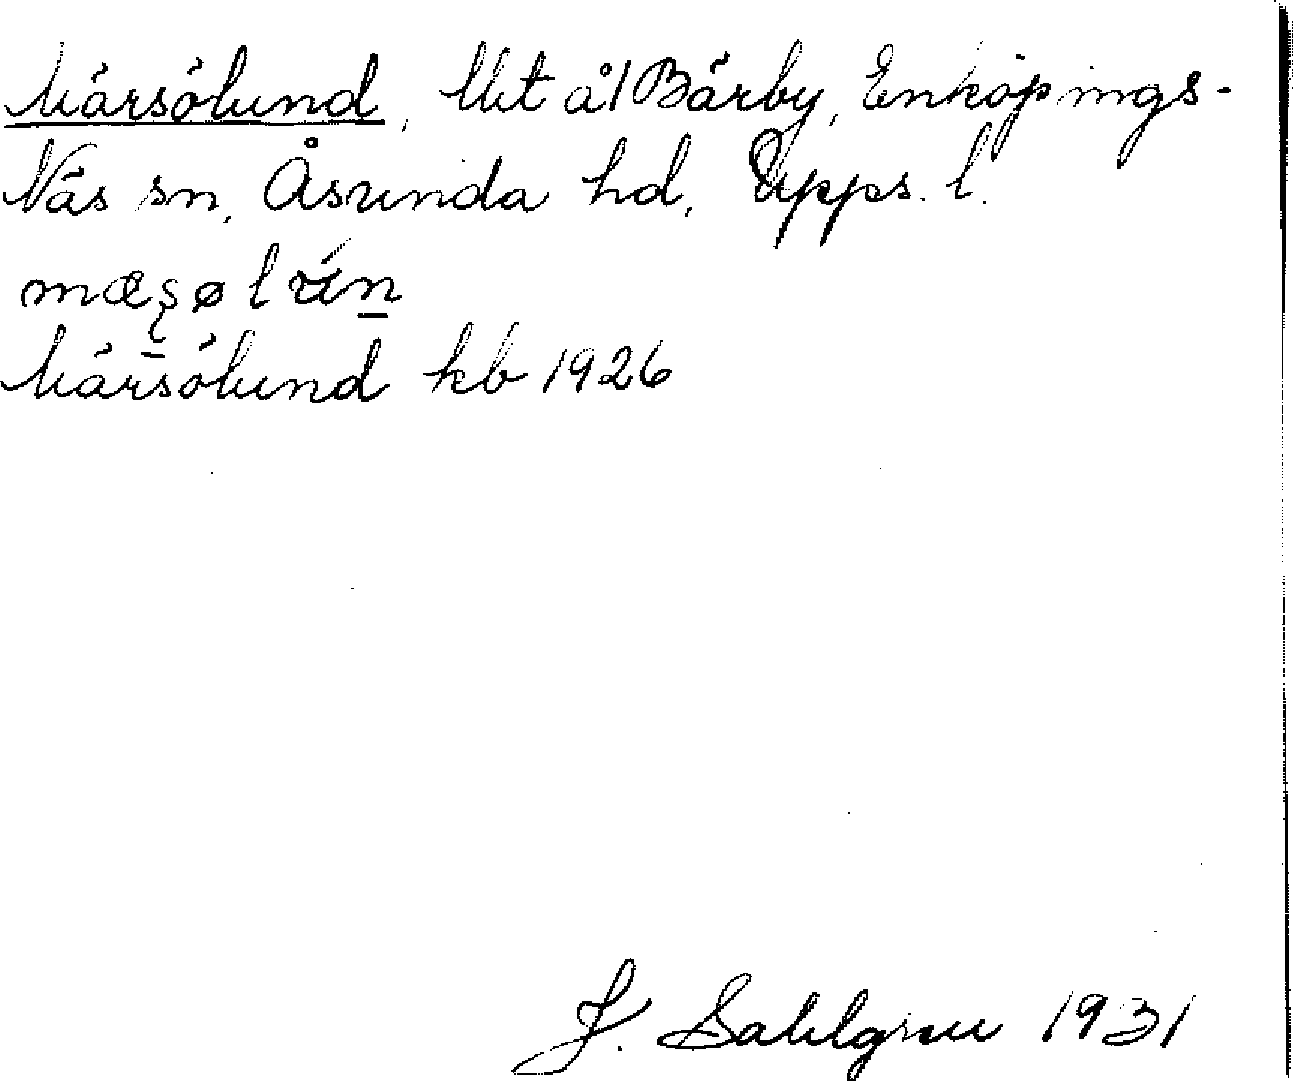 Märsölund, Ut å/ Bärby, Enköpings-
Näs sn, Åsunda hd, Upps. l.
Märsölund kb 1926
J. Sahlgren 1931